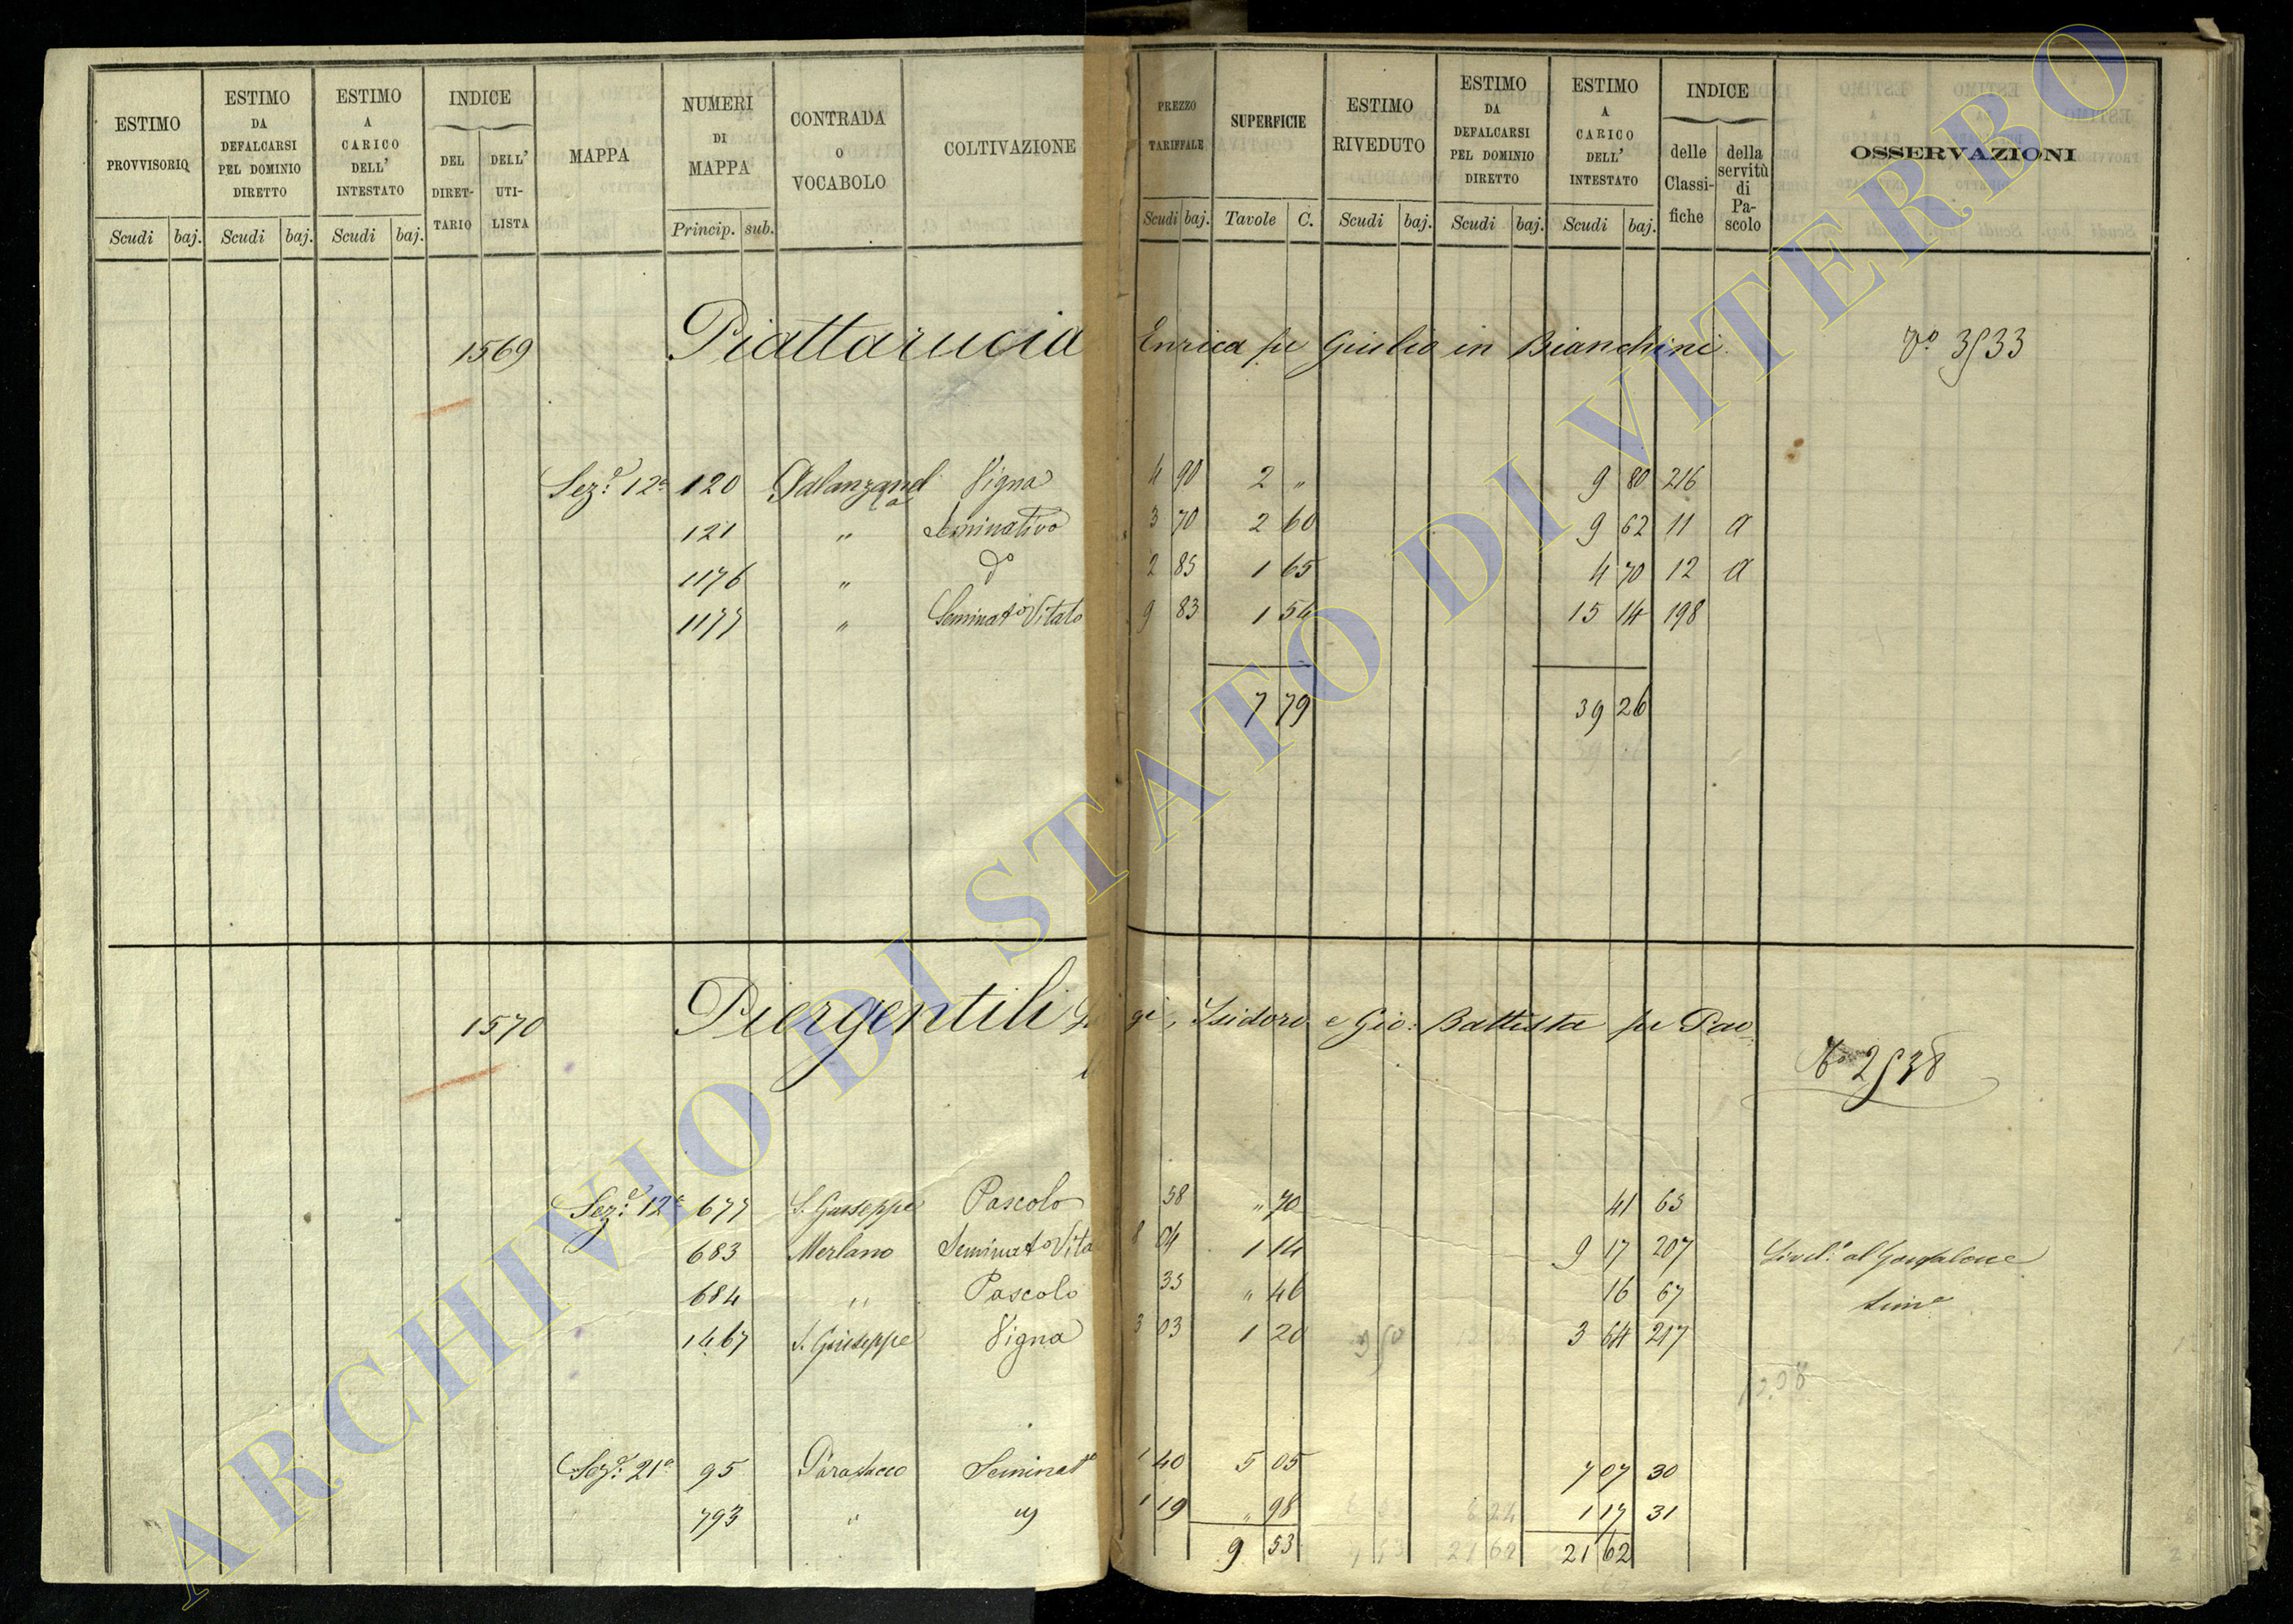 ESTIMO PROVVISORIO Scudi baj.
ESTIMO DA DEFALCARSI PEL DOMINIO DIRETTO Scudi baj.
ESTIMO A CARICO DELL' INTESTATO Scudi baj.
INDICE DEL DIRET- TARIO DELL' UTI- LISTA
MAPPA
NUMERI DI MAPPA Princip. sub.
CONTRADA O VOCABOLO
COLTIVAZIONE
PREZZO TARIFFALE Scudi baj.
SUPERFICIE Tavole C.
ESTIMO RIVEDUTO Scudi baj.
ESTIMO DA DEFALCARSI PEL DOMINIO DIRETTO Scudi baj.
ESTIMO A CARICO DELL' INTESTATO Scudi baj.
INDICE delle Classi- fiche della servitù di Pa- scolo
OSSERVAZIONI
1569 Piattarucia Enrica fu Giulio in Bianchini
Sez.e 12a 120 Vigna 4 90 2 " 9 80 216
121 " Seminativo 3 70 2 60 9 62 11 a
1176 " do 2 85 1 65 4 70 12 a
1177 " Seminato Vitato 9 83 1 54 15 14 198
7 79 39 26
1570 Piergentili gi, Isidoro e Gio: Battista fu Pao
Sez.e 12a 677 S. Giuseppe Pascolo 58 " 70 41 65
683 Merlano Seminato Vita 8 04 1 14 9 17 207
684 " Pascolo 35 " 46 16 67
1467 S. Giuseppe Vigna 3 03 1 20 3 64 217
Sez.e 21a 95 Parasacco Seminato 1 40 5 05 7 07 30
793 " " 1 19 " 98 1 17 31
9 53 21 62
ARCHIVIO DI STATO DI VITERBO